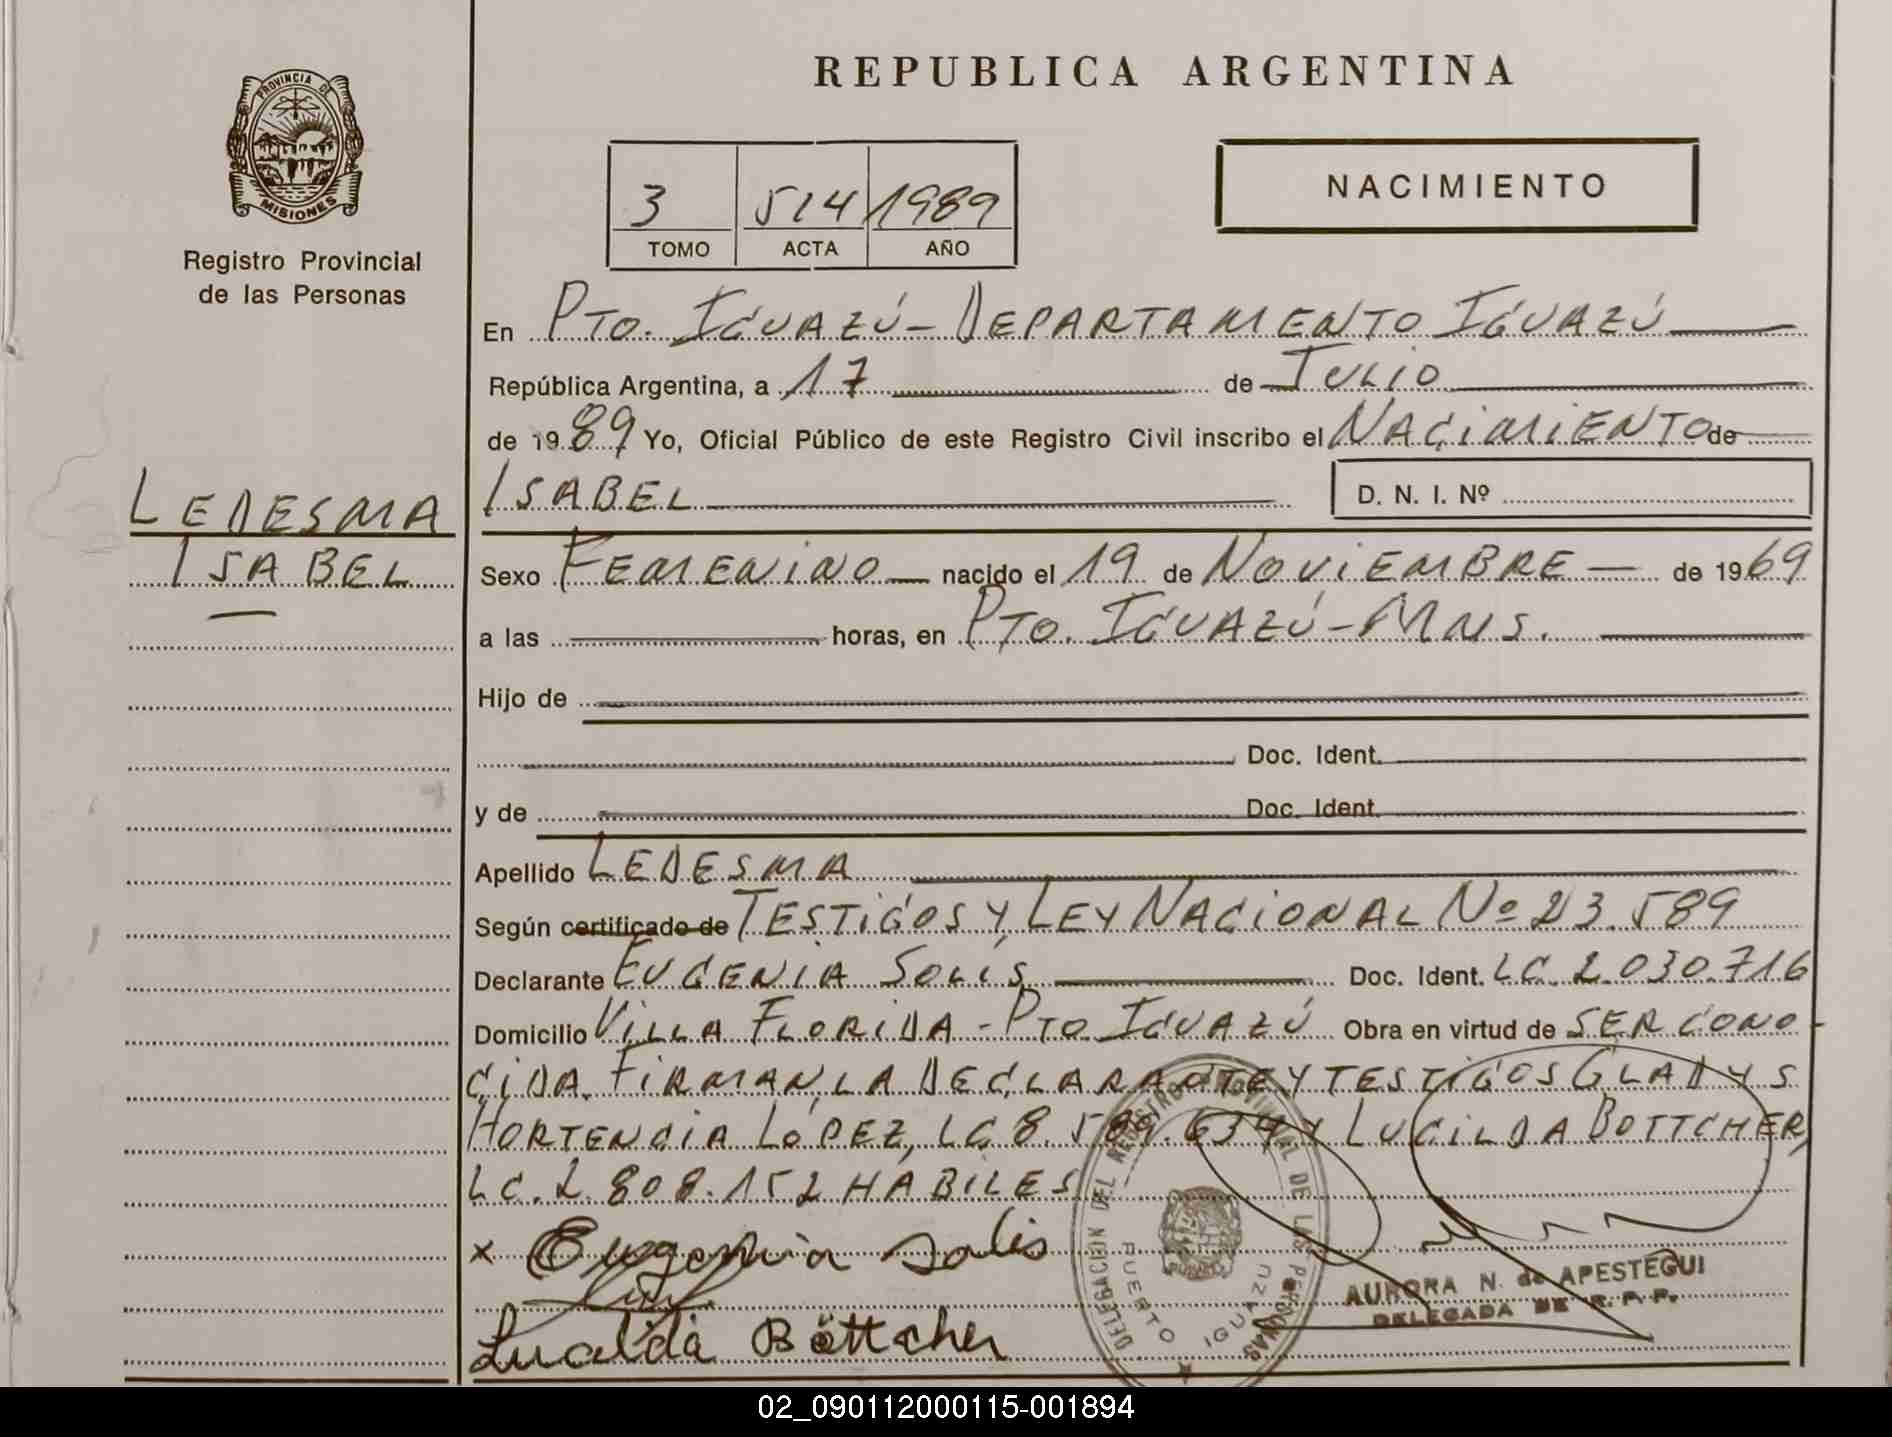 REPUBLICA ARGENTINA
PROVINCIA DE
MISIONES
Registro Provincial
de las Personas
3 514 1989
TOMO ACTA AÑO
NACIMIENTO
En PTO. IGUAZÚ - DEPARTAMENTO IGUAZÚ
República Argentina, a 17 de JULIO
de 1989 Yo, Oficial Público de este Registro Civil inscribo el NACIMIENTO de
ISABEL D. N. I. Nº
LEDESMA
ISABEL
Sexo FEMENINO nacido el 19 de NOVIEMBRE de 1969
a las horas, en PTO. IGUAZÚ - MNS.
Hijo de
Doc. Ident.
y de Doc. Ident.
Apellido LEDESMA
Según certificado de TESTIGOS Y LEY NACIONAL Nº 23.589
Declarante EUGENIA SOLIS Doc. Ident. LC. 2.030.716
Domicilio VILLA FLORIDA - PTO IGUAZÚ Obra en virtud de SER CONO-
CIDA. FIRMAN, LA DECLARANTE Y TESTIGOS GLADYS
HORTENCIA LÓPEZ, LC 8.589.637 Y LUCILDA BOTTCHER,
LC. 2.808.152 HABILES
x Eugenia Solis
Lucilda Böttcher
DELEGACION DEL REGISTRO PROVINCIAL DE LAS PERSONAS
PUERTO IGUAZU
AURORA N. de APESTEGUI
DELEGADA DE R. P. P.
02_090112000115-001894